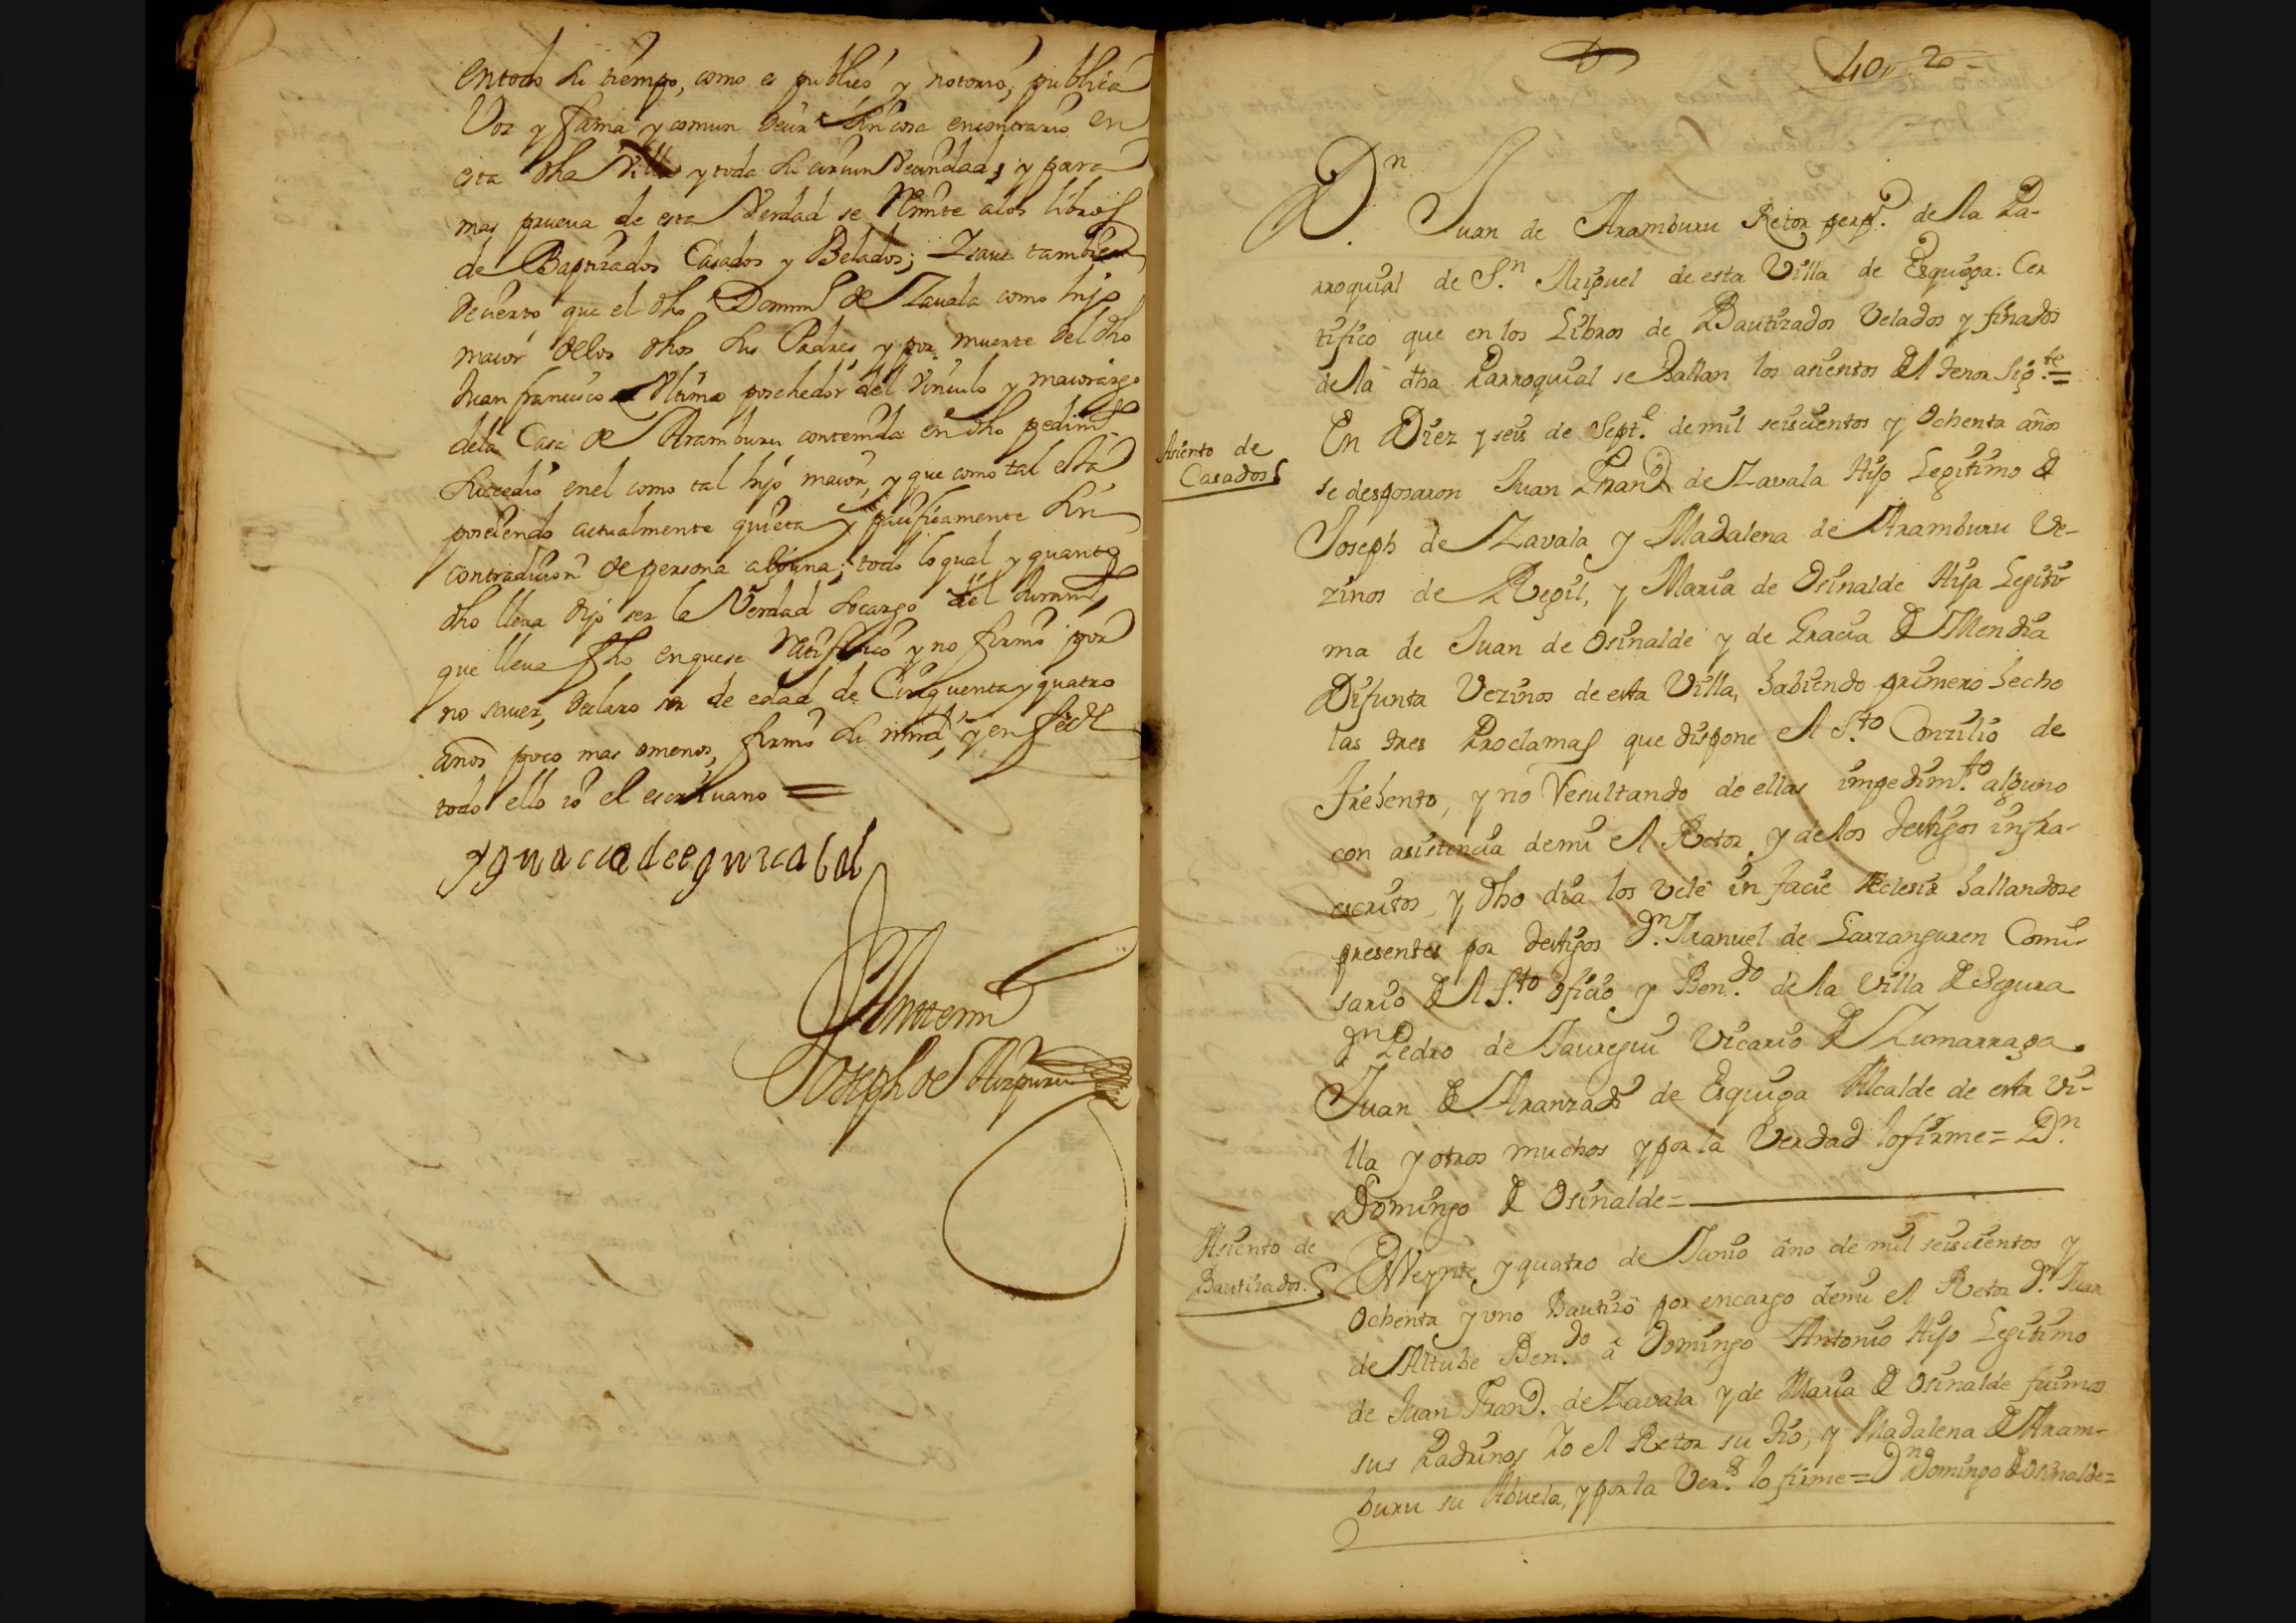 en todo su tiempo, como es publico y notorio, publica
Voz y fama y comun decir sin cosa encontrario en
esta dha Villa y toda su circunvecindad; y para
mas prueva de esta Verdad se Remite alos libros
de Baptizados Casados y Belados; y save tambien
de cierto que el dho Domingo de Zavala como hijo
maior delos dhos sus Padres, y por muerte del dho
Juan francisco Vltimo poschedor del Vinculo y maiorazgo
dela Casa de Aramburu contenida en dho pedimto
subcedio enel como tal hijo maior, y que como tal esta
poseiendo actualmente quieta y pacificamente sin
contradicion de persona alguna; todo lo qual y quanto
dho lleva dijo ser la Verdad socargo del Juramto
que lleva fho enquese Ratifico y no firmo por
no saver, declaro ser de edad de Cinquenta y quatro
años poco mas omenos, firmo su mrd, y en fee de
todo ello io el escrivano =
Antemi
Joseph de Aizpuru
40 v. 20
Dn Juan de Aramburu Retor perp.º de la Pa-
rroquial de S.n Miguel de esta Villa de Esquioga: Cer
tifico que en los Libros de Bautizados Velados y finados
de la dha Parroquial se hallan los asientos del tenor sig.te =
Asiento de
Casados
En Diez y seis de Sept.e de mil seiscientos y Ochenta años
se desposaron Juan Fran.co de Zavala Hijo Legitimo de
Joseph de Zavala y Madalena de Aramburu Ve-
zinos de Regil, y Maria de Osinalde Hija Legiti
ma de Juan de Osinalde y de Gracia de Mendia
Difunta Vezinos de esta Villa, habiendo primero hecho
las tres Proclamas que dispone el S.to Conzilio de
Trehento, y no Resultando de ellas impedim.to alguno
con asistencia demi el Retor y delos testigos infra-
escritos, y dho dia los velè in facie Eclesiæ hallandose
presentes por testigos D.n Manuel de Garranguren Comi-
sario del S.to Oficio y Ben.do de la Villa de Segura
Dn Pedro de Jauregui Vicario de Zumarraga
Juan de Aranzadi de Esquioga Alcalde de esta Vi-
lla y otros muchos y por la Verdad lo firme = Dn.
Domingo de Osinalde =
Asiento de
Bautizados.
En Veynte y quatro de Junio año de mil seiscientos y
Ochenta y vno Bautizò por encargo demi el Retor D.n Juan
de Altube Ben.do â Domingo Antonio Hijo Legitimo
de Juan Fran.co de Zavala y de Maria de Osinalde fuimos
sus Padrinos Yo el Retor su tio, y Madalena de Aram-
buru su Abuela, y por la Ver.d lo firme = Dn Domingo de Osinalde =